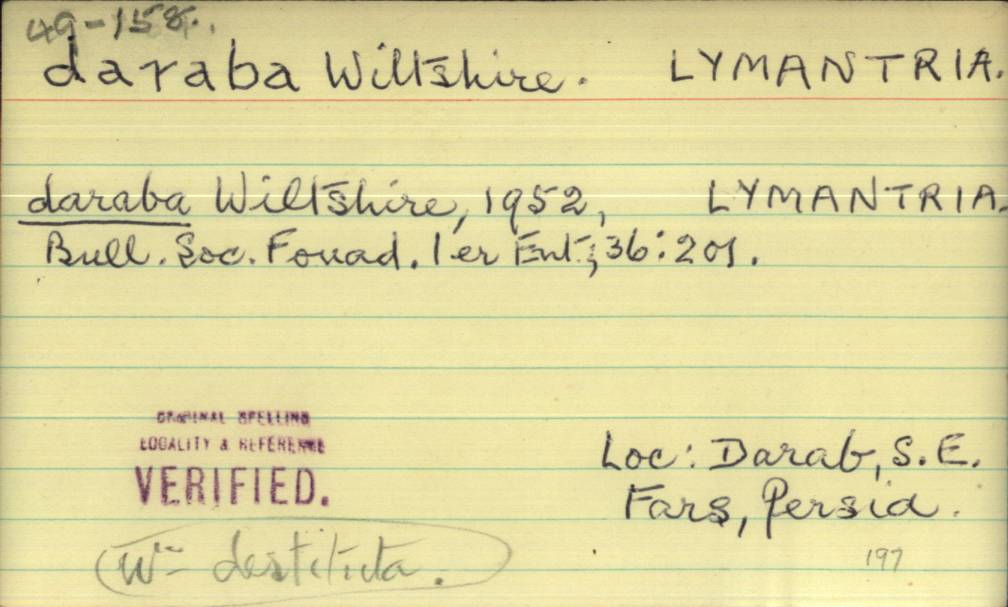 49-158.
daraba Wiltshire. LYMANTRIA.
daraba Wiltshire, 1952, LYMANTRIA.
Bull. Soc. Fouad. 1er Ent., 36: 201.
ORIGINAL SPELLING
LOCALITY & REFERENCE
VERIFIED.
Loc: Darab, S.E.
Fars, Persia.
destituta.
197